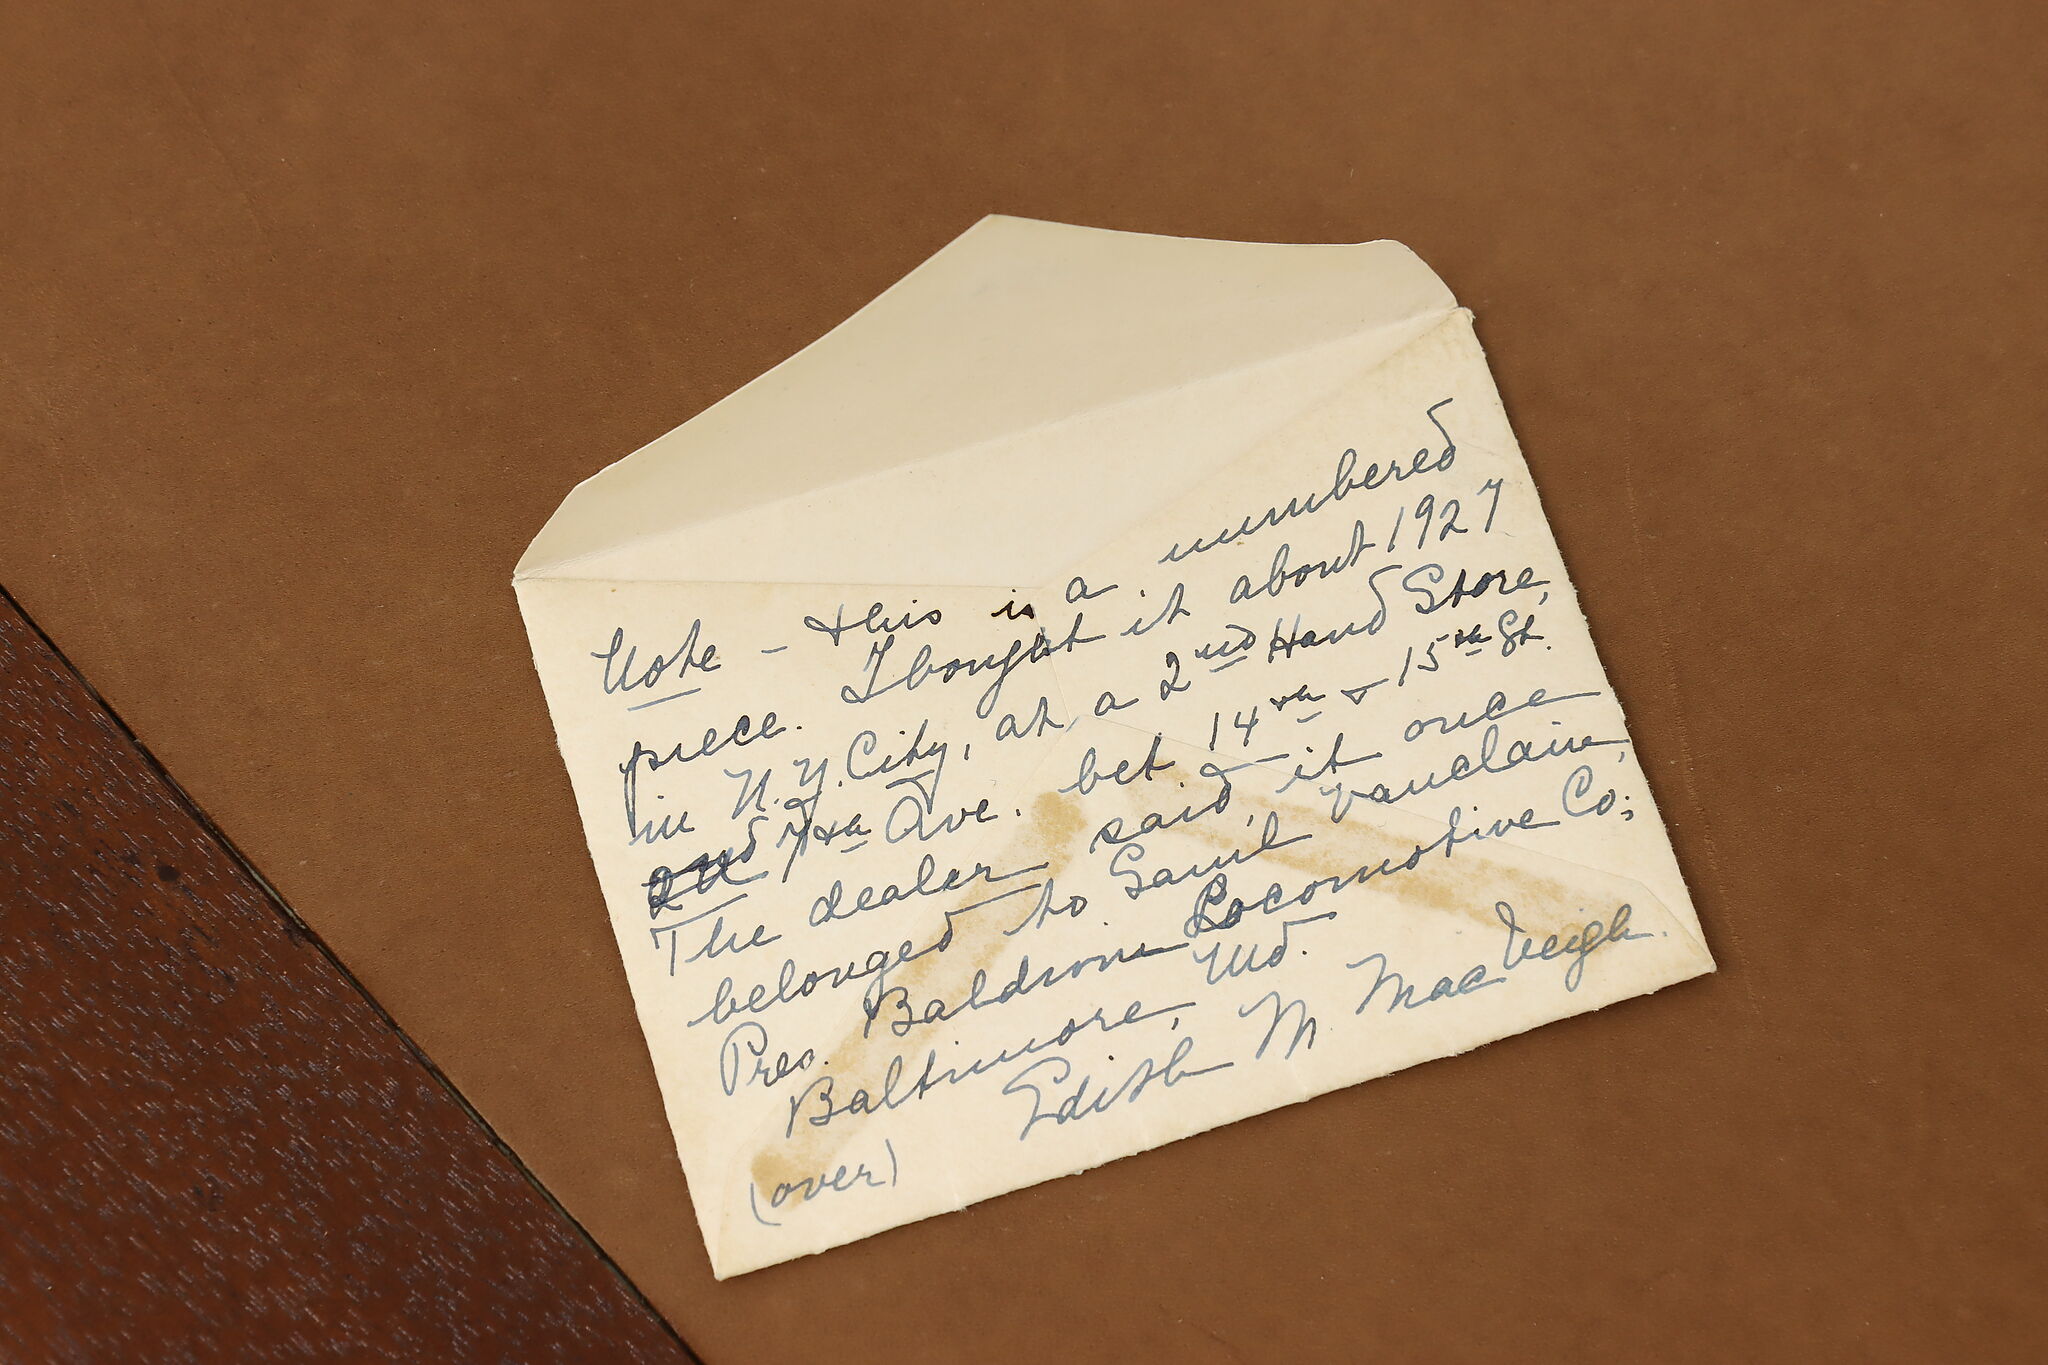 Note - this is a numbered
piece. I bought it about 1927
in N.Y. City, at a 2nd Hand Store,
2nd 7th Ave. bet. 14th & 15th St.
The dealer said, it once
belonged to Saml Vauclain,
Pres. Baldwin Locomotive Co;
Baltimore, Md.
Edith M. MacVeigh.
(over)